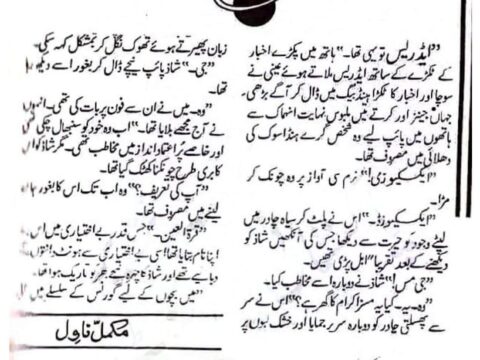 "ایڈریس تو یہی تھا۔" ہاتھ میں پکڑے اخبار
کے ٹکڑے کے ساتھ ایڈریس ملاتے ہوئے عینی نے
سوچا اور اخبار کا ٹکڑا ہینڈ بیگ میں ڈال کر آگے بڑھی۔
جہاں جینز اور کرتے میں ملبوس نہایت انہماک سے
ہاتھوں میں پائپ لیے وہ شخص گرے ہنڈا سوک کی
دھلائی میں مصروف تھا۔
"ایکسکیوزمی!" نرم سی آواز پر وہ چونک کر
مڑا۔
"ایکسکیوزڈ۔" اس نے پلٹ کر سیاہ چادر میں
لپٹے وجود کو حیرت سے دیکھا جس کی آنکھیں شاذ کو
دیکھنے کے بعد تقریباً ابل پڑی تھیں۔
"جی مس!" شاذ نے دوبارہ اسے مخاطب کیا۔
"وہ۔ یہ۔ کیا یہ مسز اکرام کا گھر ہے؟" اس نے سر
سے پھسلتی چادر کو دوبارہ سر پر جمایا اور خشک لبوں پر
زبان پھیرتے ہوئے تھوک نگل کر بمشکل کہہ سکی۔
"جی۔" شاذ پائپ نیچے ڈال کر بغور اسے دیکھ
تھا۔
"وہ۔ میں نے ان سے فون پر بات کی تھی۔ انہوں
نے آج مجھے بلایا تھا۔" اب وہ خود کو سنبھال چکی تھی
اور خاصے پر اعتماد انداز میں مخاطب تھی۔ مگر شاذ کو اس
کا بری طرح چونکنا کھٹک گیا تھا۔
"آپ کی تعریف؟" وہ اب تک اس کا بغور
لینے میں مصروف تھا۔
"قرۃ العین۔" جس قدر بے اختیاری میں اس
اپنا نام بتایا تھا اسی بے اختیاری سے ہونٹ دانتوں
دبایے تھے اور شاذ کا چہرہ تاریک ہوا تھا۔
"میں بچوں کے لیے گورنس کے سلسلے میں
مکمل ناول